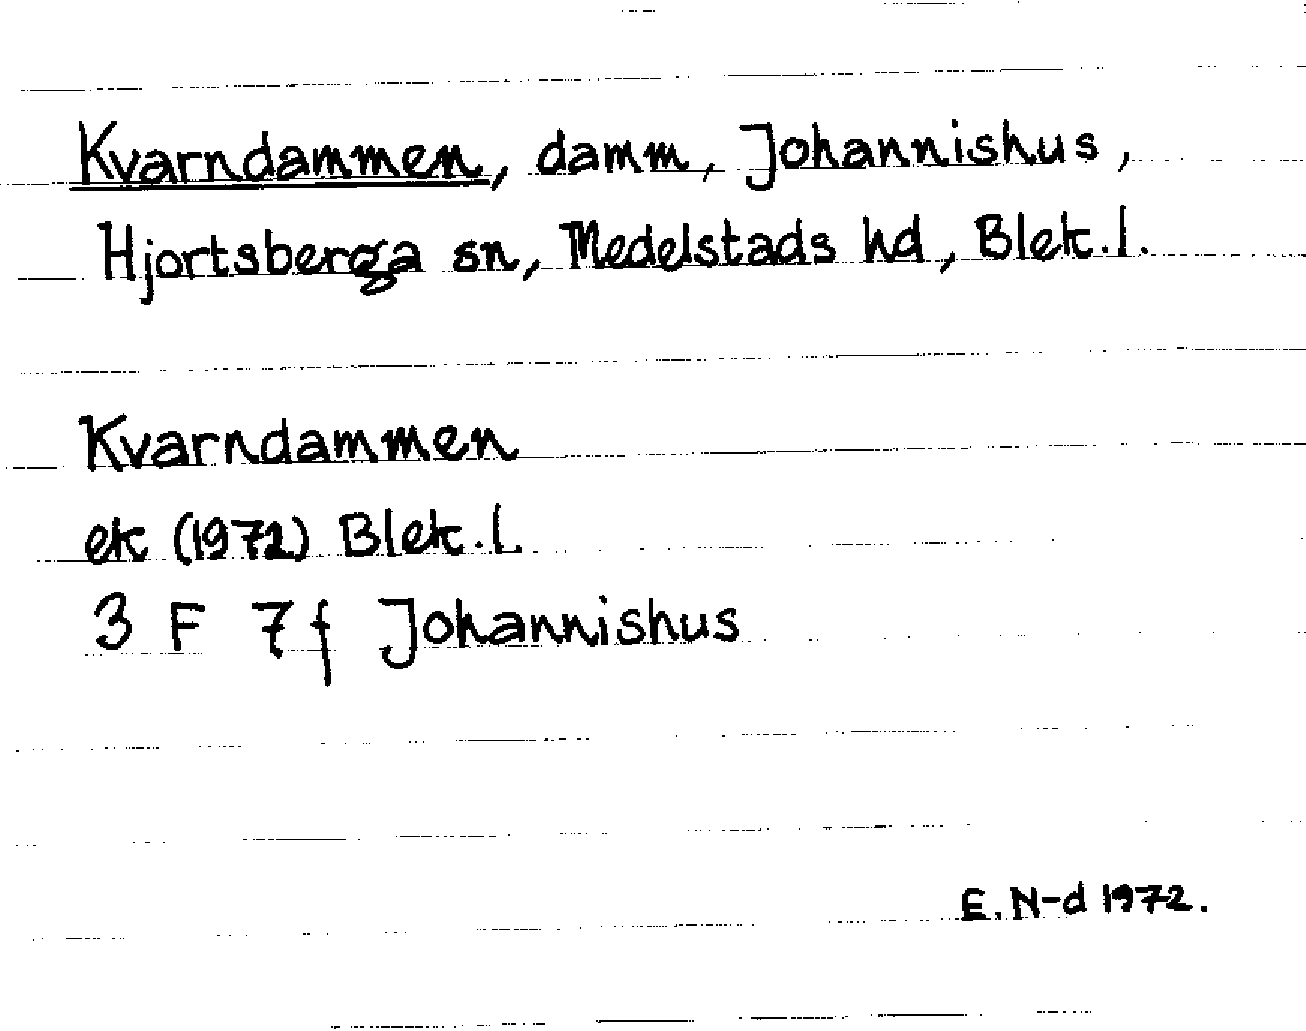 Kvarndammen, damm, Johannishus,
Hjortsberga sn, Medelstads hd, Blek.l.
Kvarndammen
ek (1972) Blek.l.
3 F 7f Johannishus
E. N-d 1972.